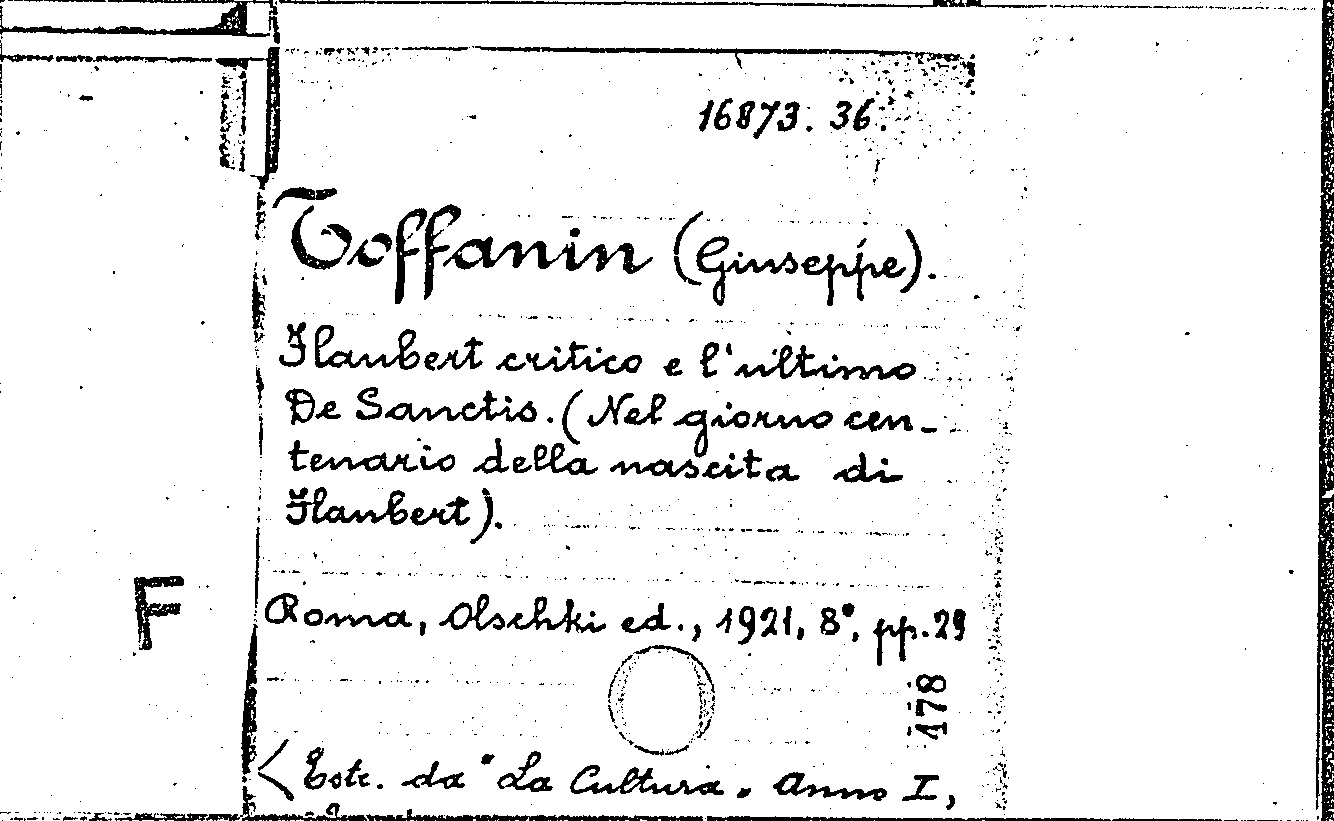 16873. 36.
Toffanin (Giuseppe).
Flaubert critico e l'ultimo
De Sanctis. (Nel giorno cen-
tenario della nascita di
Flaubert).
F
Roma, Olschki ed., 1921, 8°, pp. 29
178
Estr. da "La Cultura„ Anno I,